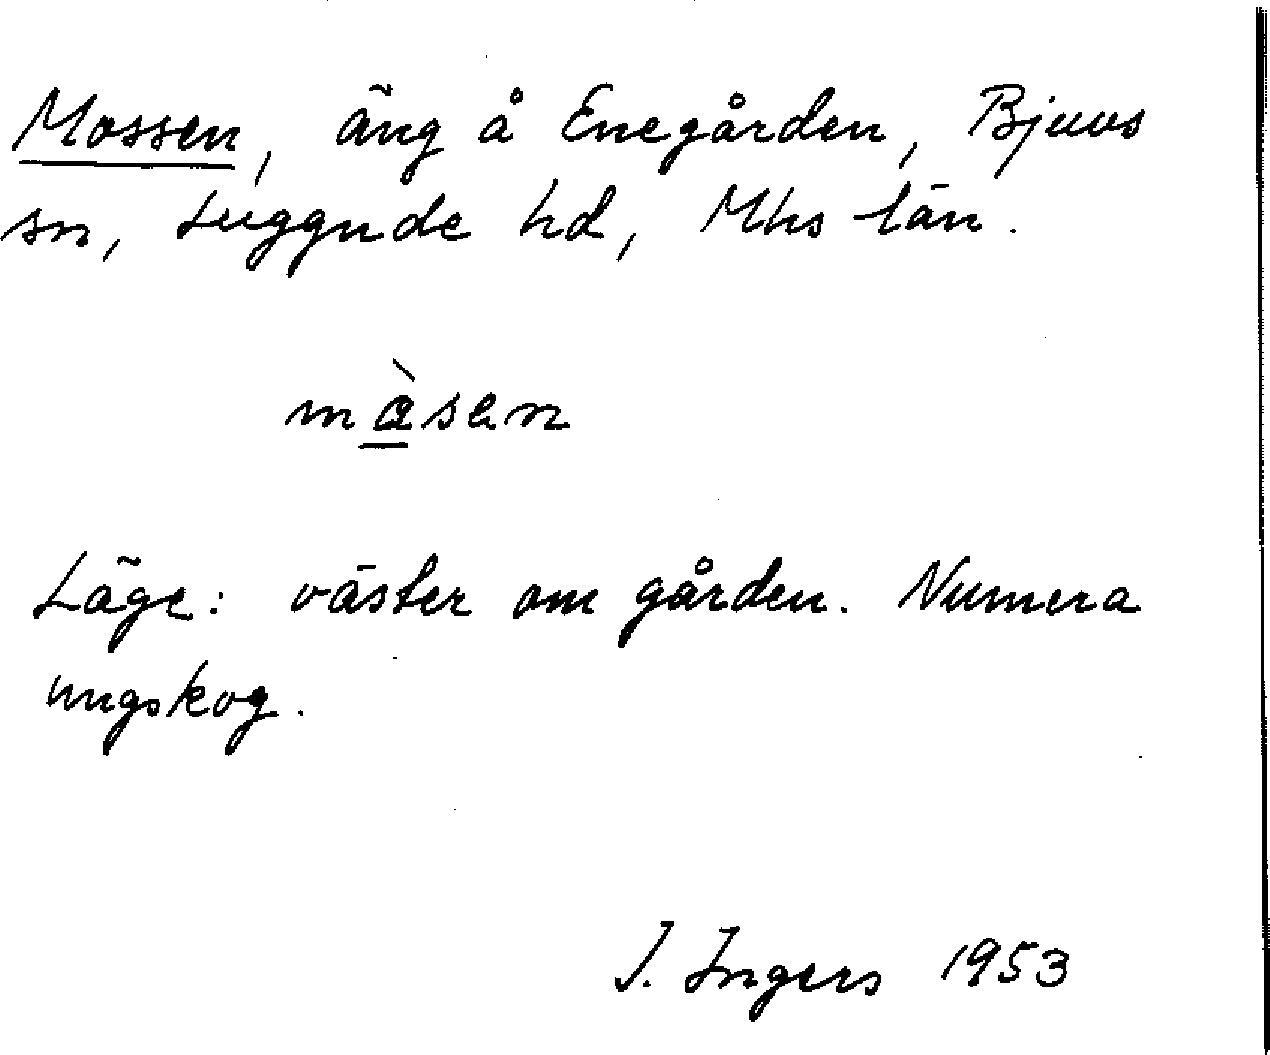 Mossen, äng å Enegården, Bjuvs
sn, Luggude hd, Mhs län.
mò̲sen
Läge: väster om gården. Numera
ungskog.
I. Ingers 1953